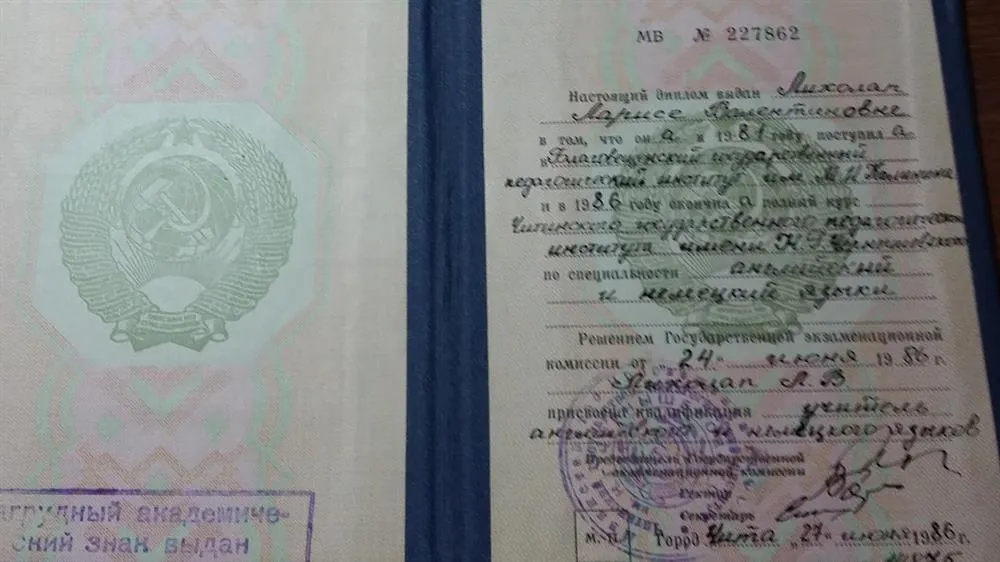 агрудный академиче-
ский знак выдан
МВ № 227862
Настоящий диплом выдан
Ларисе Валентиновне
в том, что он а в 1981 году поступил а
в Благовещенский государственный
педагогический институт им. М.И. Калинина
и в 1986 году окончил а полный курс
Читинского государственного педагогического
института имени Н.Г. Чернышевского
по специальности английский
и немецкий языки
Решением Государственной экзаменационной
комиссии от "24" июня 1986 г.
Л. В
присвоена квалификация учитель
английского и немецкого языков
Председатель Государственной
экзаменационной комиссии
Ректор
Секретарь
М. П. Город Чита "27" июня 1986 г.